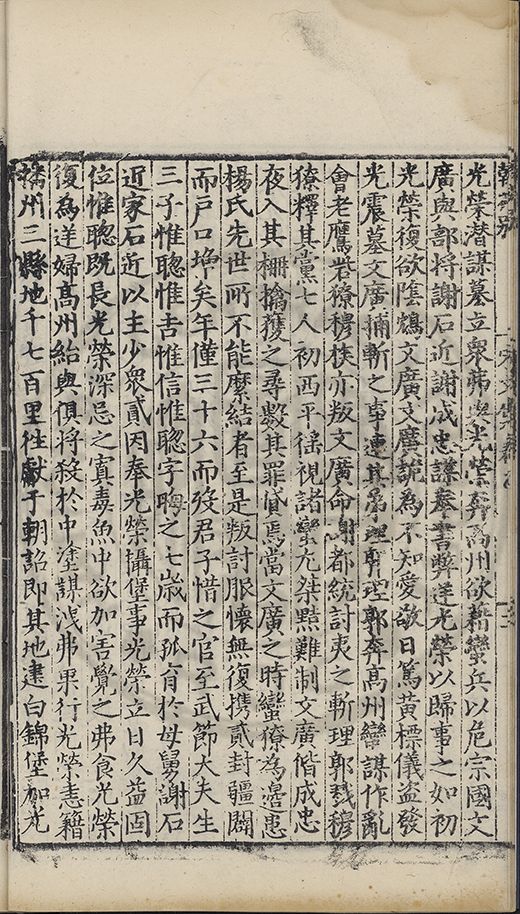 翰苑別
光榮潛謀墓立衆弗與光榮奔高州欲藉蠻兵以危宗國文
廣與部將謝石近謝成忠謀奉書幣逆光榮以歸事之如初
光榮復欲陰鴆文廣文廣詭為不知愛敬日篤黃標儀盜發
光震墓文廣捕斬之事連其弟理郭理郭奔高州蠻謀作亂
會老鷹砦獠穆族亦叛文廣命謝都統討夷之斬理郭戮穆
獠釋其黨七人初西平猺視諸蠻尤桀黠難制文廣偕成忠
夜入其柵擒獲之尋數其罪貸焉當文廣之時蠻獠為邊患
楊氏先世所不能縻結者至是叛討服懷無復携貳封疆闢
而戶口增矣年僅三十六而歿君子惜之官至武節大夫生
三子惟聦惟吉惟信惟聦字之七歲而孤育於母舅謝石
近家石近以主少衆貳因奉光榮攝堡事光榮立日久益固
位惟聦既長光榮深忌之寘毒魚中欲加害覺之弗食光榮
復為逆婦高州紿與俱將殺於中塗謀洩弗果行光榮恚籍
播州二縣地千七百里往獻于朝詔即其地建白錦堡加光